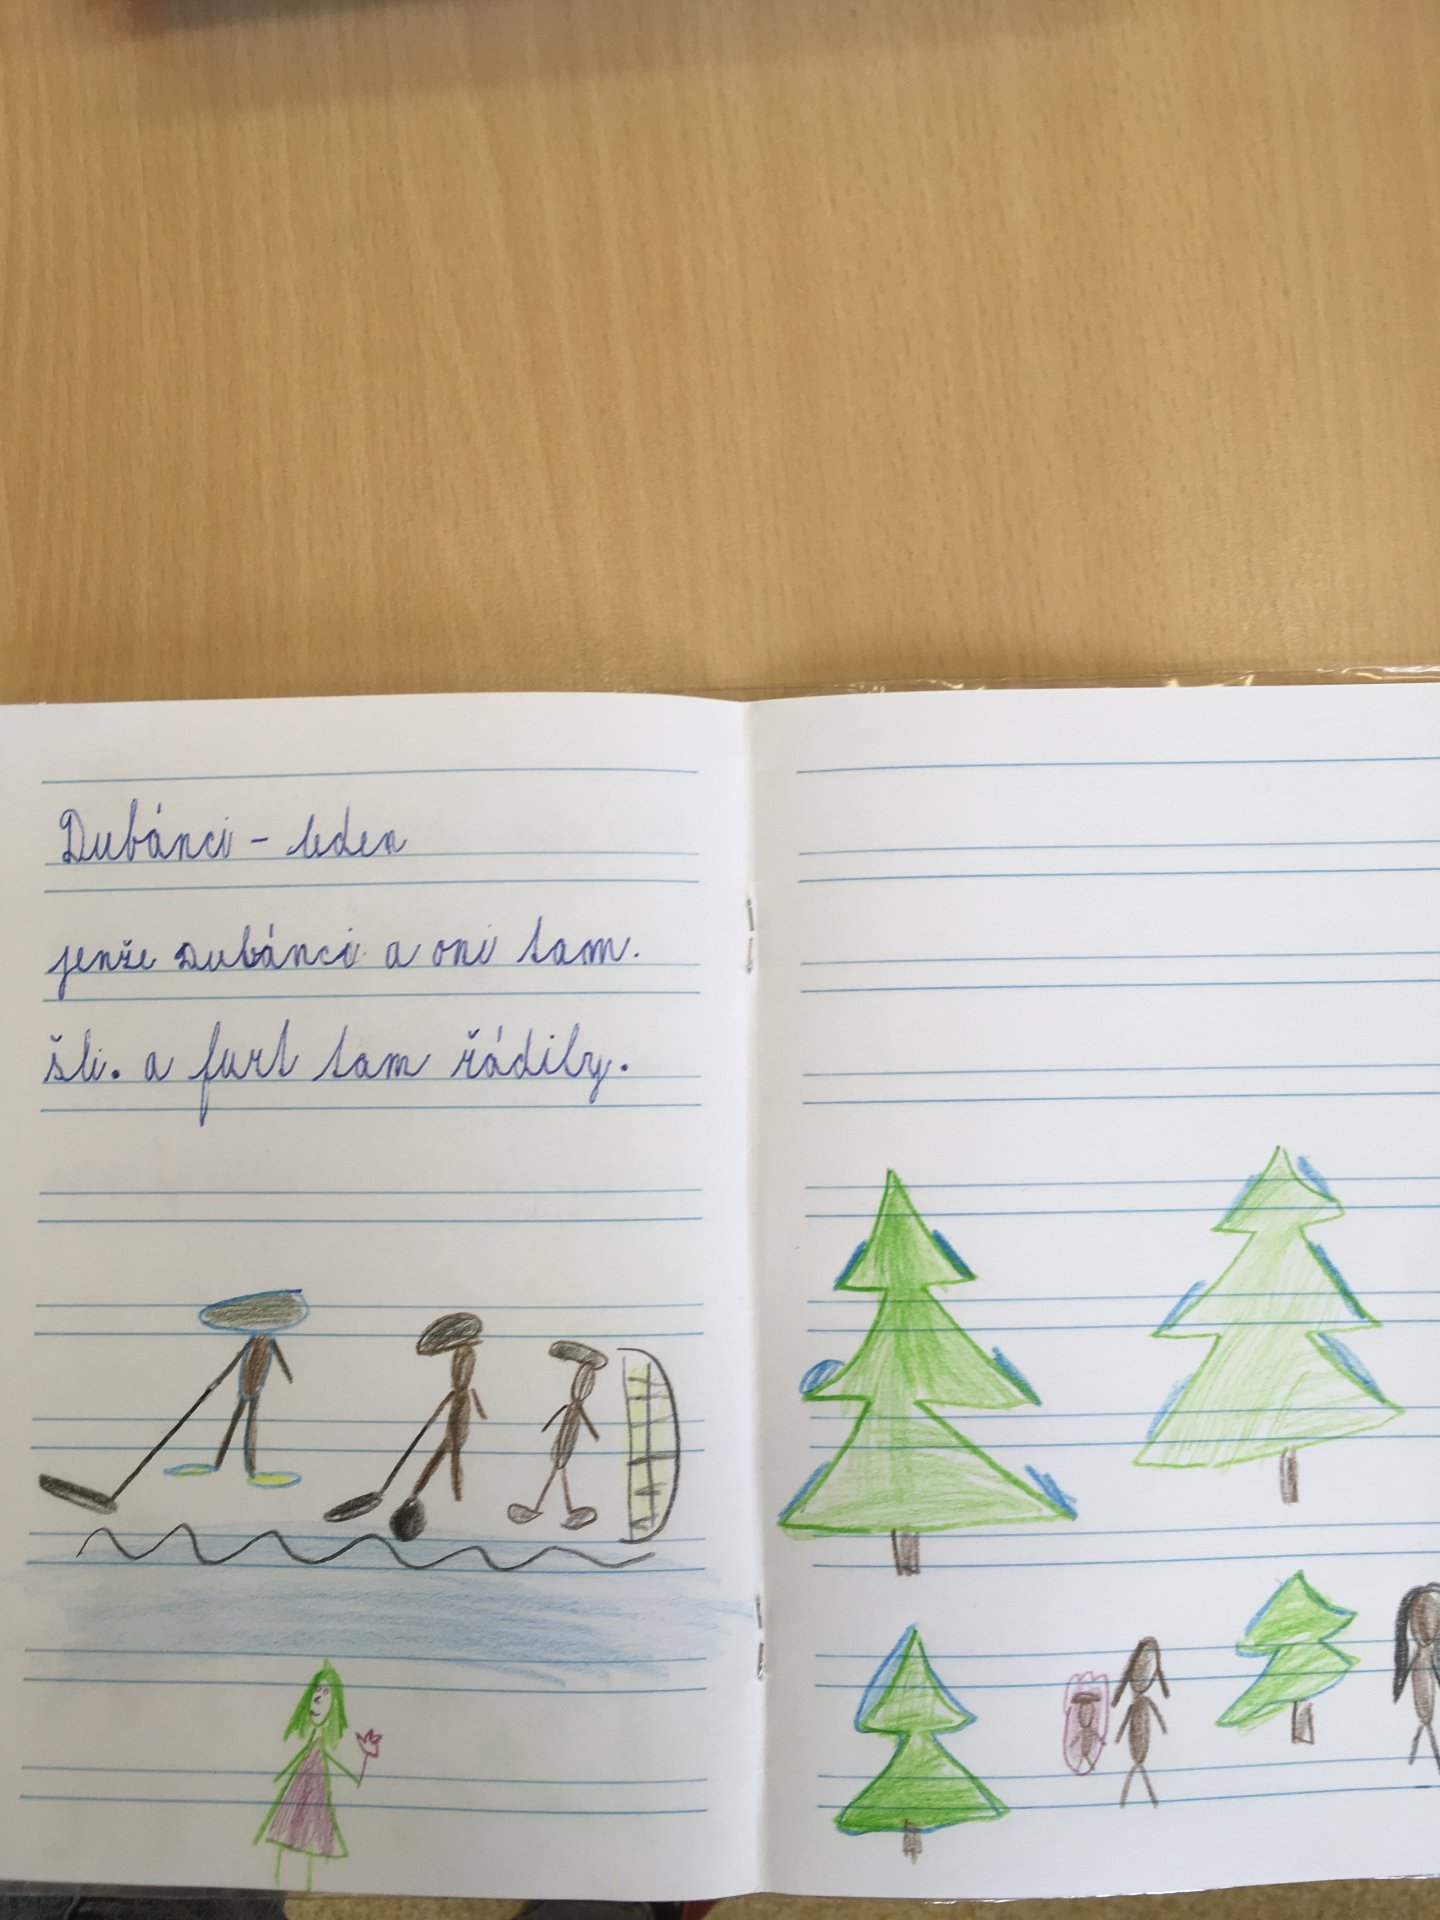 Dubánci - leden
jenže Dubánci a oni tam.
šli. a furt tam řádily.